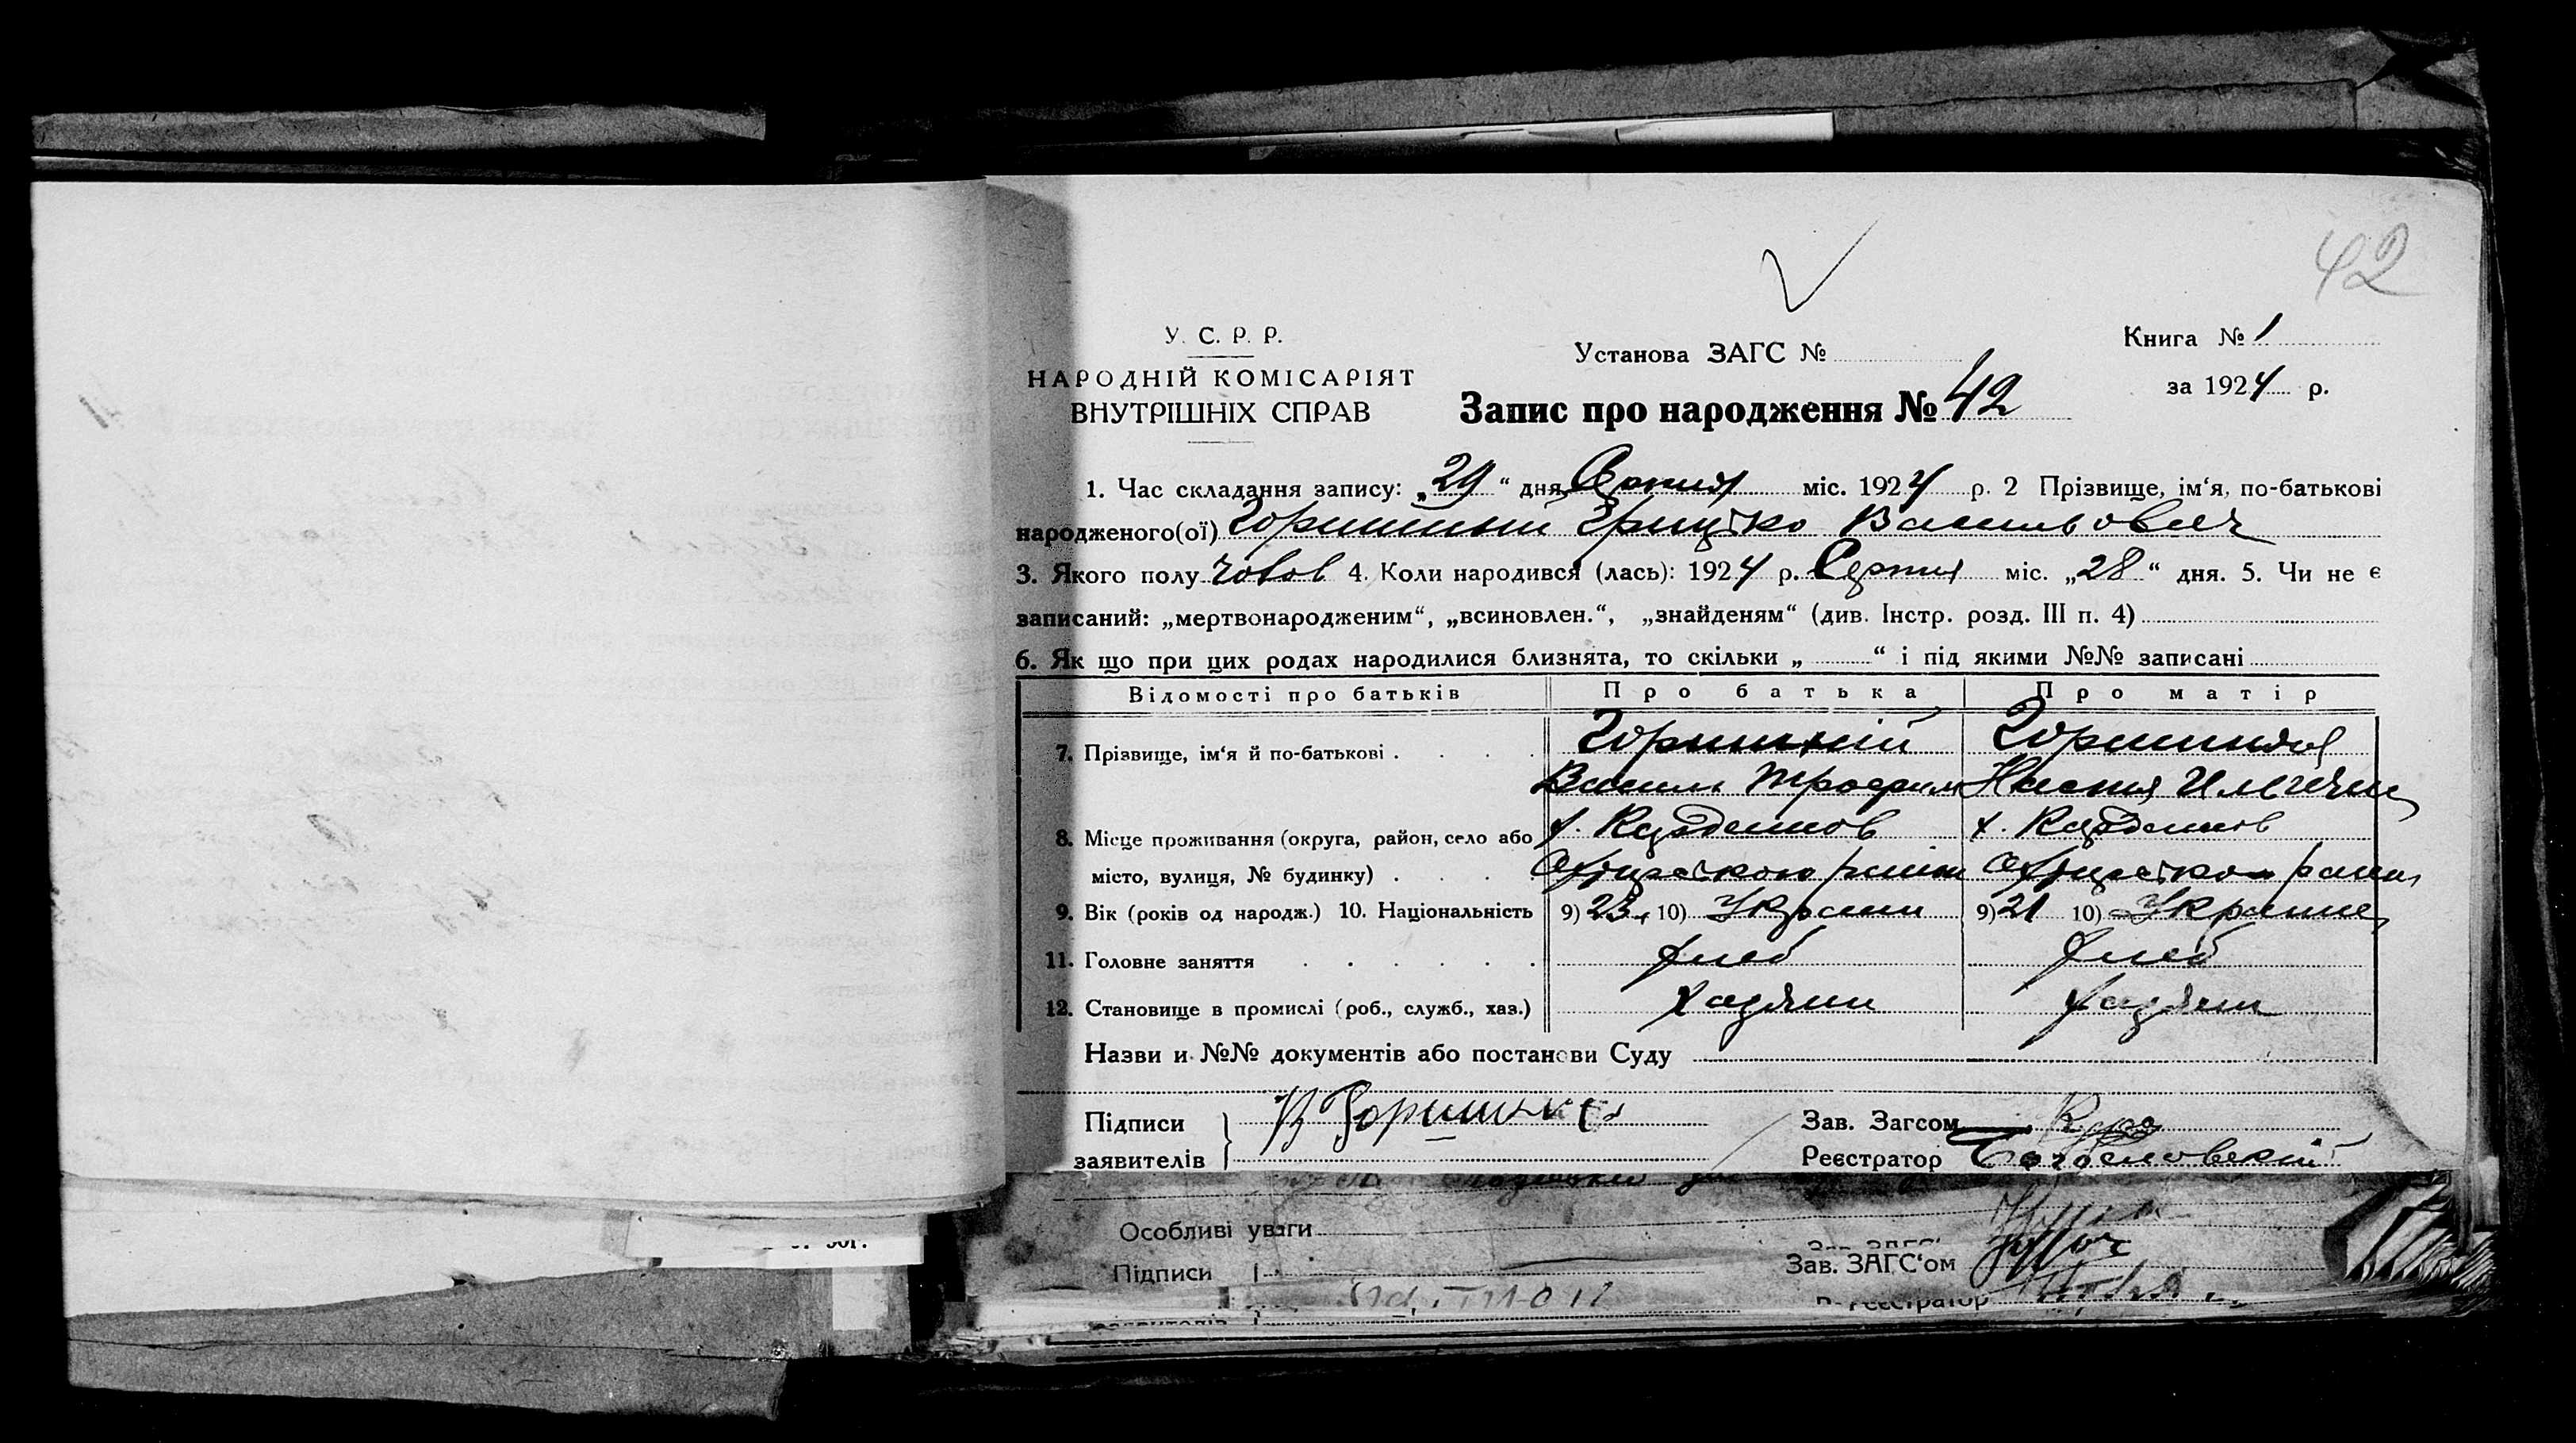 42
У. С. Р. Р.
НАРОДНІЙ КОМІСАРІЯТ
ВНУТРІШНІХ СПРАВ
Установа ЗАГС №
Книга № 1
за 1924 р.
Запис про народження № 42
1. Час складання запису: „29“ дня Серпня міс. 1924 р. 2 Прізвище, ім‘я, по-батькові
народженого(ої) Горишний Грицько Васильович
3. Якого полу чолов 4. Коли народився (лась): 1924 р. Серпня міс. „28“ дня. 5. Чи не є
записаний: „мертвонародженим“, „всиновлен.“, „знайденям“ (див. Інстр. розд. III п. 4)
6. Як що при цих родах народилися близнята, то скільки „ “ і під якими №№ записані
Відомості про батьків Про батька Про матір
7. Прізвище, ім‘я й по-батькові Горишний Горишняя
Василь Трофим Настя
8. Місце проживання (округа, район, село або х. х.
місто, вулиця, № будинку)
9. Вік (років од народж.) 10. Національність 9) 23 10) Україн 9) 21 10) Україне
11. Головне заняття хліб хліб
12. Становище в промислі (роб., служб., хаз.) хазяин хазяин
Назви и №№ документів або постанови Суду
Підписи В Горишний Зав. Загсом
заявителів Реєстратор Богословский
Особливі уваги
Зав. ЗАГС‘ом
Підписи
Реєстратор